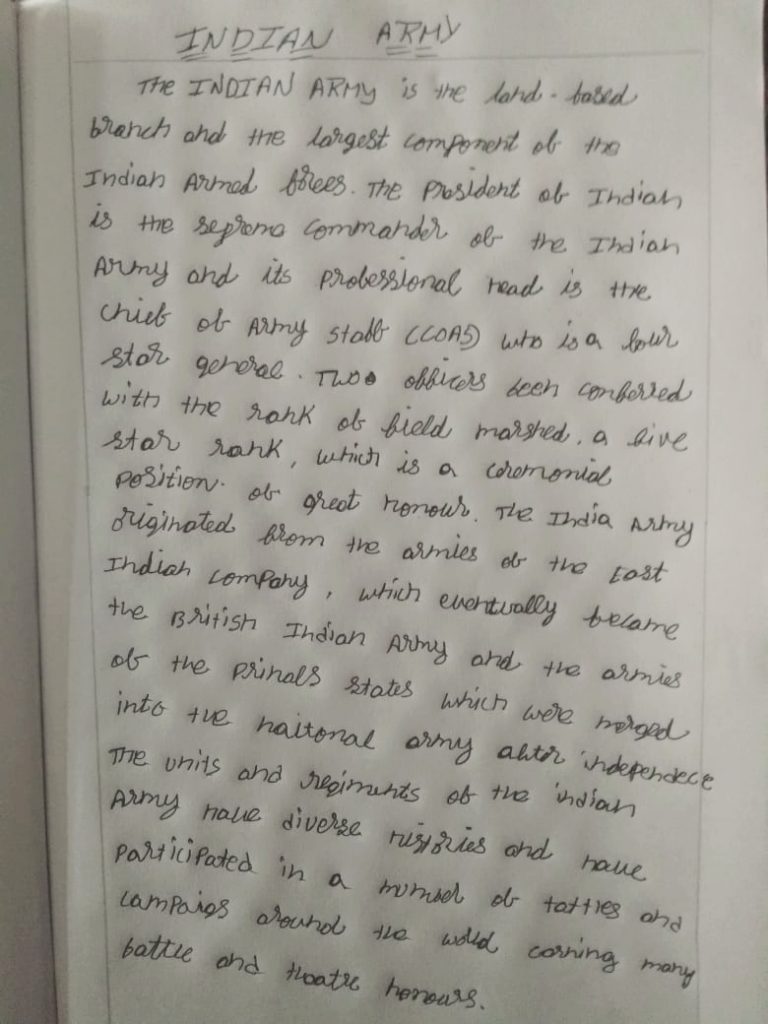 INDIAN ARMY
The INDIAN ARMY is the land-based
branch and the largest component of the
Indian Armed forces. The President of Indian
is the supreme commander of the Indian
Army and its professional head is the
chief of Army staff (COAS) who is a four
star general. Two officers been conferred
with the rank of field marshed, a five
star rank, which is a ceremonial
position of great honour. The India Army
originated from the armies of the East
Indian company, which eventually became
the British Indian Army and the armies
of the prinals states which were merged
into the naitonal army after independece
The units and regiments of the indian
Army have diverse histories and have
participated in a number of battles and
campaigs around the world carning many
battle and theatre honours.